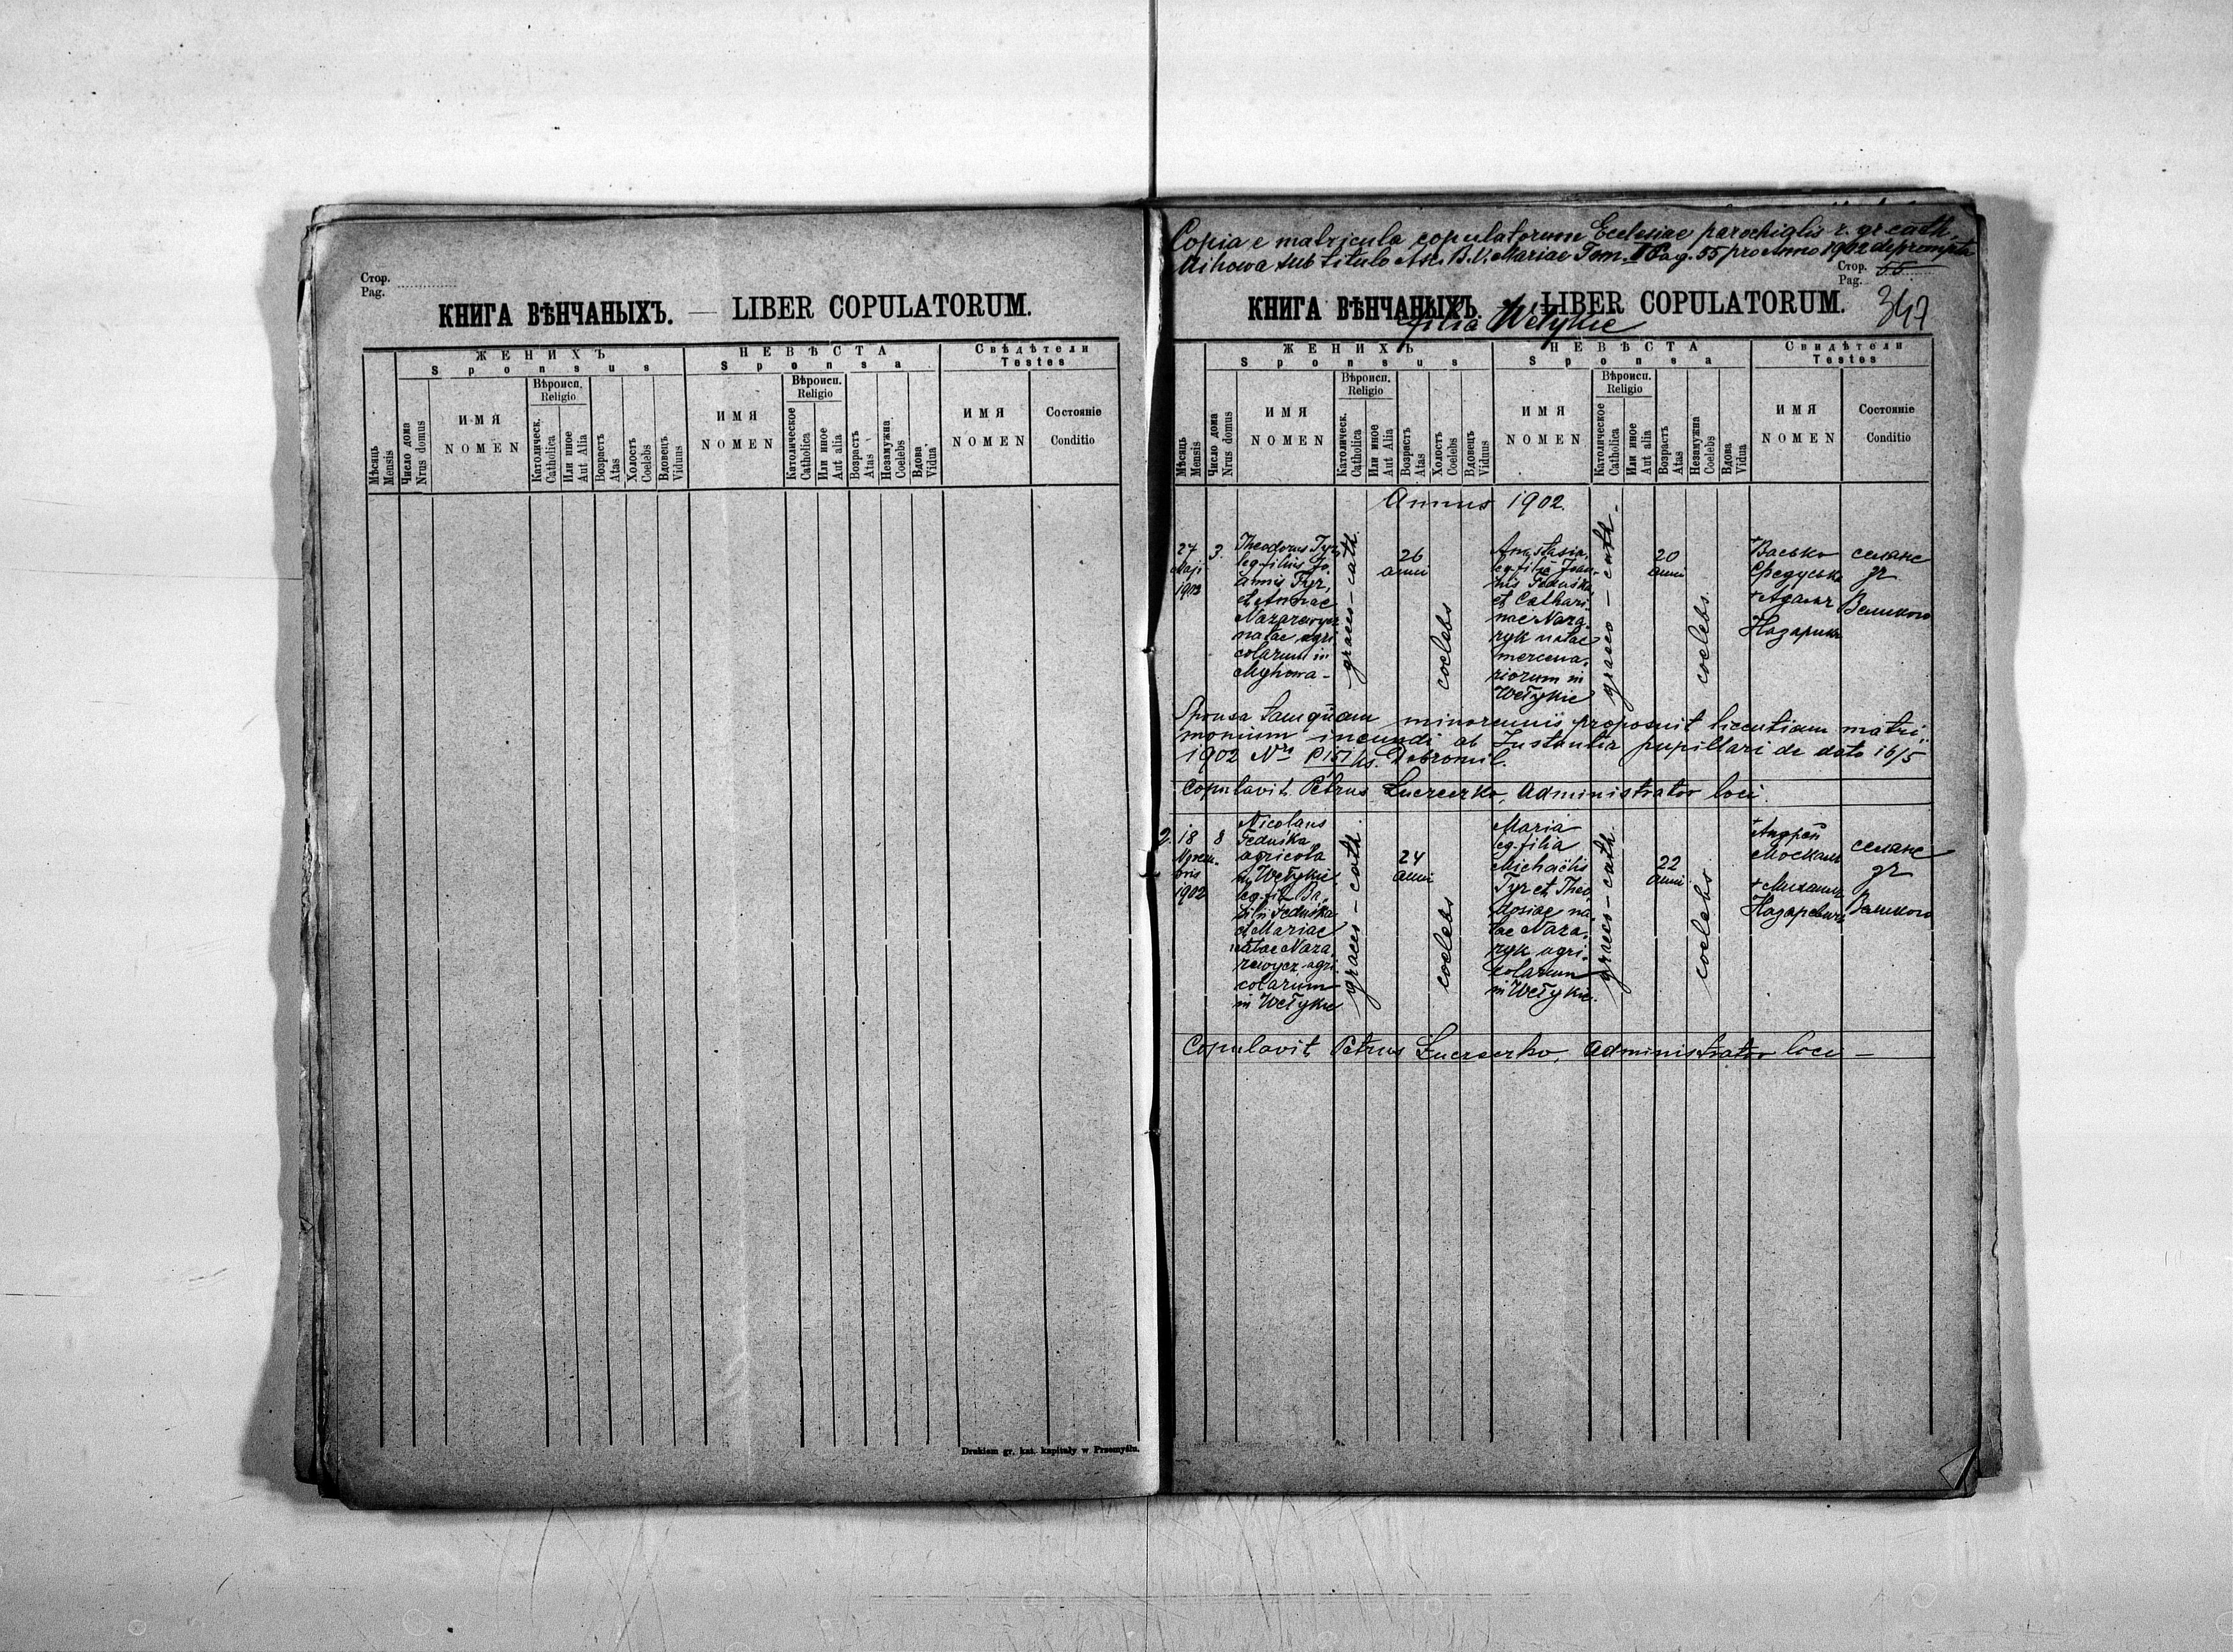 Стор.
Pag.
КНИГА ВѢНЧАНЫХЪ. — LIBER COPULATORUM.
ЖЕНИХЪ
Sponsus
НЕВѢСТА
Sponsa
Свѣдѣтели
Testes
Мѣсяць
Mensis
Число дома
Nrus domus
ИМЯ
NOMEN
Вѣроисп.
Religio
Католическ.
Catholica
Или иное
Aut Alia
Возрастъ
Atas
Холостъ
Coelebs
Вдовецъ
Viduus
ИМЯ
NOMEN
Вѣроисп.
Religio
Католическое
Catholica
Или иное
Aut alia
Возрастъ
Atas
Незамужна
Coelebs
Вдова
Vidua
ИМЯ
NOMEN
Состояніе
Conditio
Drukiem gr. kat. kapituły w Przemyślu.
Copia e matricula copulatorum Ecclesiae parochialis r. gr. cath.
Mihowa sub titulo B. V. Mariae Tom. II Pag. 55 pro anno 1902 deprompta
Стор.
Pag. 55
347
КНИГА ВѢНЧАНЫХЪ. — LIBER COPULATORUM.
filia Wełykie
ЖЕНИХЪ
Sponsus
НЕВѢСТА
Sponsa
Свидѣтели
Testes
Мѣсяць
Mensis
Число дома
Nrus domus
ИМЯ
NOMEN
Вѣроисп.
Religio
Католическ.
Catholica
Или иное
Aut Alia
Возрастъ
Atas
Холостъ
Coelebs
Вдовецъ
Viduus
ИМЯ
NOMEN
Вѣроисп.
Religio
Католическое
Catholica
Или иное
Aut alia
Возрастъ
Atas
Незамужна
Coelebs
Вдова
Vidua
ИМЯ
NOMEN
Состояніе
Conditio
Annus 1902.
27
Maji
1902
3.
Theodorus Tyr,
leg. filius Jo-
annis Tyr,
et Annae
Nazarewycz
natae agri-
colarum in
Myhowa -
graeco - cath.
26
anni
coelebs
Anastasia,
leg. filia Joan-
nis Feduśka
et Cathari-
nae Naza-
ryk natae
mercena-
riorum in
Wełykie
graeco - cath.
20
anni
coelebs.
+Васько
Федуська
+Адамъ
Назарикъ
селяне
зъ
Великого
Sponsa tamquam minorennis proposuit licentiam matri-
monium ineundi ab Instantia pupillari de dato 16/5
1902 Nrs P 151/02. Dobromil.
Copulavit Petrus Łucreczko, Administrator loci.
2.
18
Novem-
bris
1902
8
Nicolaus
Feduśka
agricola
in Wełykie,
leg. fil. Ba-
silii Feduśka
et Mariae
natae Naza-
rewycz agri-
colarum
in Wełykie
graeco - cath.
24
anni
coelebs
Maria
leg. filia
Michaëlis
Tyr et Theo-
dosiae na-
tae Naza-
ryk agri-
colarum
in Wełykie.
graeco - cath.
22
anni
coelebs
+Андрей
Москаль
+Михаилъ
Назаревичъ
селяне
зъ
Великого
Copulavit Petrus Łucreczko, Administrator loci —